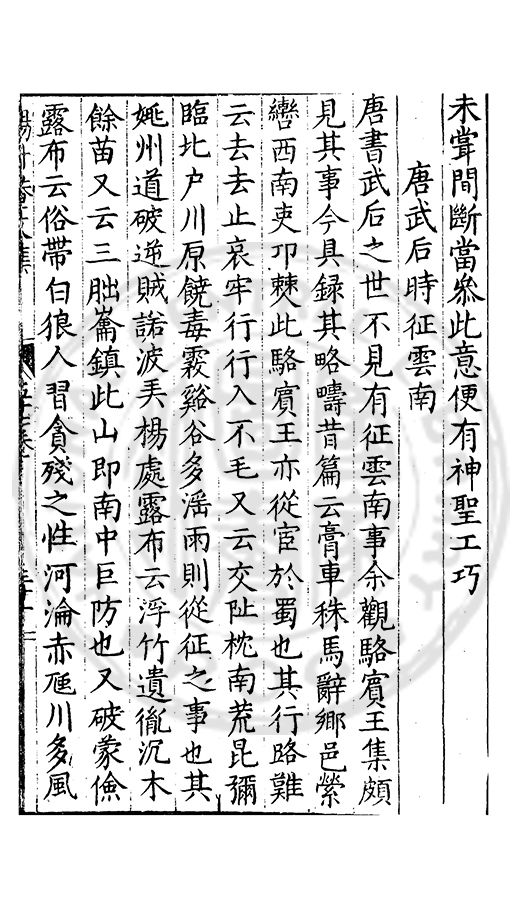 未嘗間斷當叅此意便有神聖工巧
唐武后時征雲南
唐書武后之世不見有征雲南事余觀駱賓王集頗
見其事今具録其略疇昔篇云膏車秣馬辭鄉邑縈
轡西南吏卭僰此駱賓王亦從宦於蜀也其行路難
云去去止哀牢行行入不毛又云交阯枕南荒昆彌
臨北户川原饒毒霧谿谷多滛雨則從征之事也其
姚州道破逆賊諾波弄楊處露布云浮竹遺㣧沉木
餘苗又云三朏崙鎮此山即南中巨防也又破蒙儉
露布云俗帶白狼人習貪殘之性河淪赤虺川多風